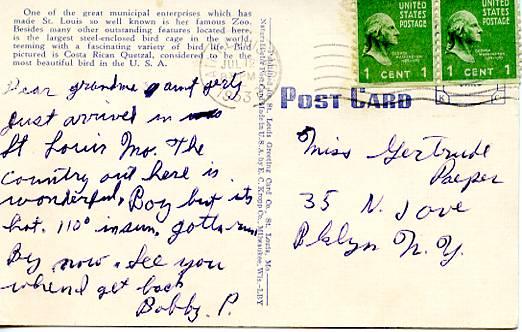 One of the great municipal enterprises which has
made St. Louis so well known is her famous Zoo.
Besides many other outstanding features located here,
is the largest steel-enclosed bird cage in the world,
teeming with a fascinating variety of bird life. Bird
pictured is Costa Rican Quetzal, considered to be the
most beautiful bird in the U. S. A.
Dear grandma & aunt gert
Just arrived in
St Louis Mo. The
country out here is
wonderful. Boy but its
hot. 110° in sun. gotta run
By now. See you
when I get back
Bobby. P.
Published for St. Louis Greeting Card Co., St. Louis, Mo.
Natural Color Post Card Made in U. S. A. by E. C. Kropp Co., Milwaukee, Wis.—LBY
JUL
PM
1953
UNITED
STATES
POSTAGE
1 CENT 1
UNITED
STATES
POSTAGE
1 CENT 1
POST CARD
Miss Gertrude
Paeper
35 N. Jove
Bklyn N. Y.